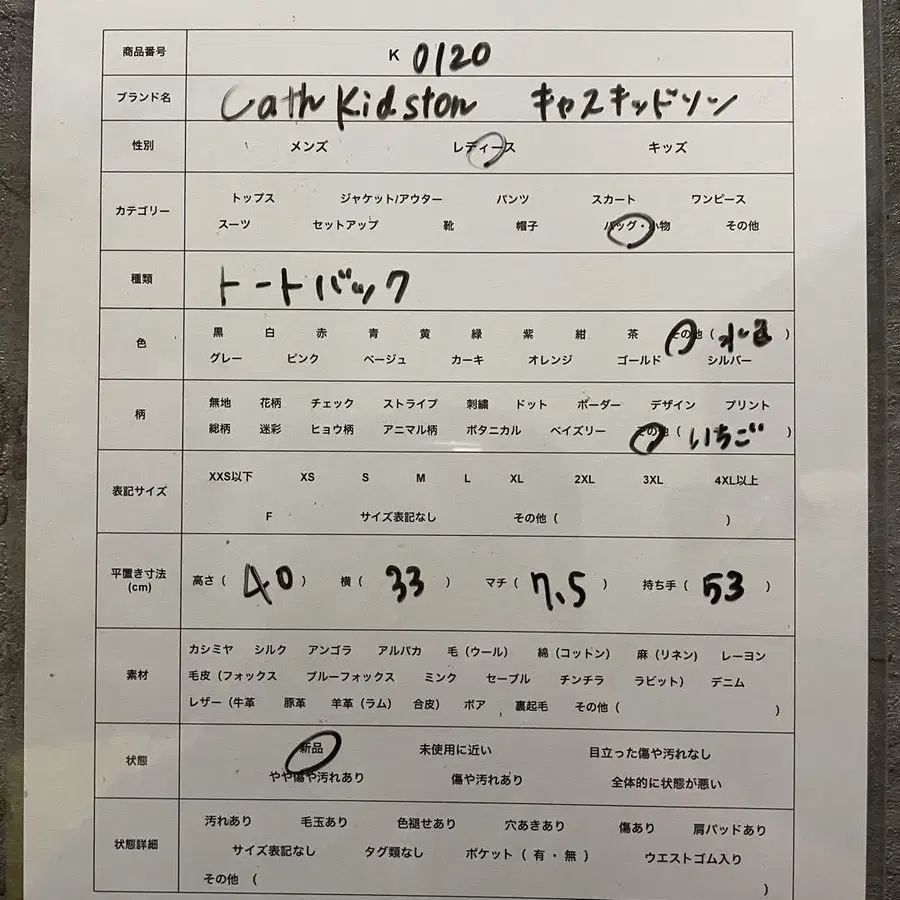 商品番号 K 0120
ブランド名 Cath Kidston キャスキッドソン
性別 メンズ レディース キッズ
カテゴリー
トップス ジャケット/アウター パンツ スカート ワンピース
スーツ セットアップ 靴 帽子 バッグ・小物 その他
種類 トートバック
色
黒 白 赤 青 黄 緑 紫 紺 茶 その他 ( 水色 )
グレー ピンク ベージュ カーキ オレンジ ゴールド シルバー
柄
無地 花柄 チェック ストライプ 刺繍 ドット ボーダー デザイン プリント
総柄 迷彩 ヒョウ柄 アニマル柄 ボタニカル ペイズリー その他 ( いちご )
表記サイズ
XXS以下 XS S M L XL 2XL 3XL 4XL以上
F サイズ表記なし その他 ( )
平置き寸法
(cm)
高さ ( 40 ) 横 ( 33 ) マチ ( 7.5 ) 持ち手 ( 53 )
素材
カシミヤ シルク アンゴラ アルパカ 毛（ウール） 綿（コットン） 麻（リネン) レーヨン
毛皮（フォックス ブルーフォックス ミンク セーブル チンチラ ラビット） デニム
レザー（牛革 豚革 羊革（ラム） 合皮） ボア 裏起毛 その他 ( )
状態
新品 未使用に近い 目立った傷や汚れなし
やや傷や汚れあり 傷や汚れあり 全体的に状態が悪い
状態詳細
汚れあり 毛玉あり 色褪せあり 穴あきあり 傷あり 肩パッドあり
サイズ表記なし タグ類なし ポケット ( 有・無 ) ウエストゴム入り
その他 ( )